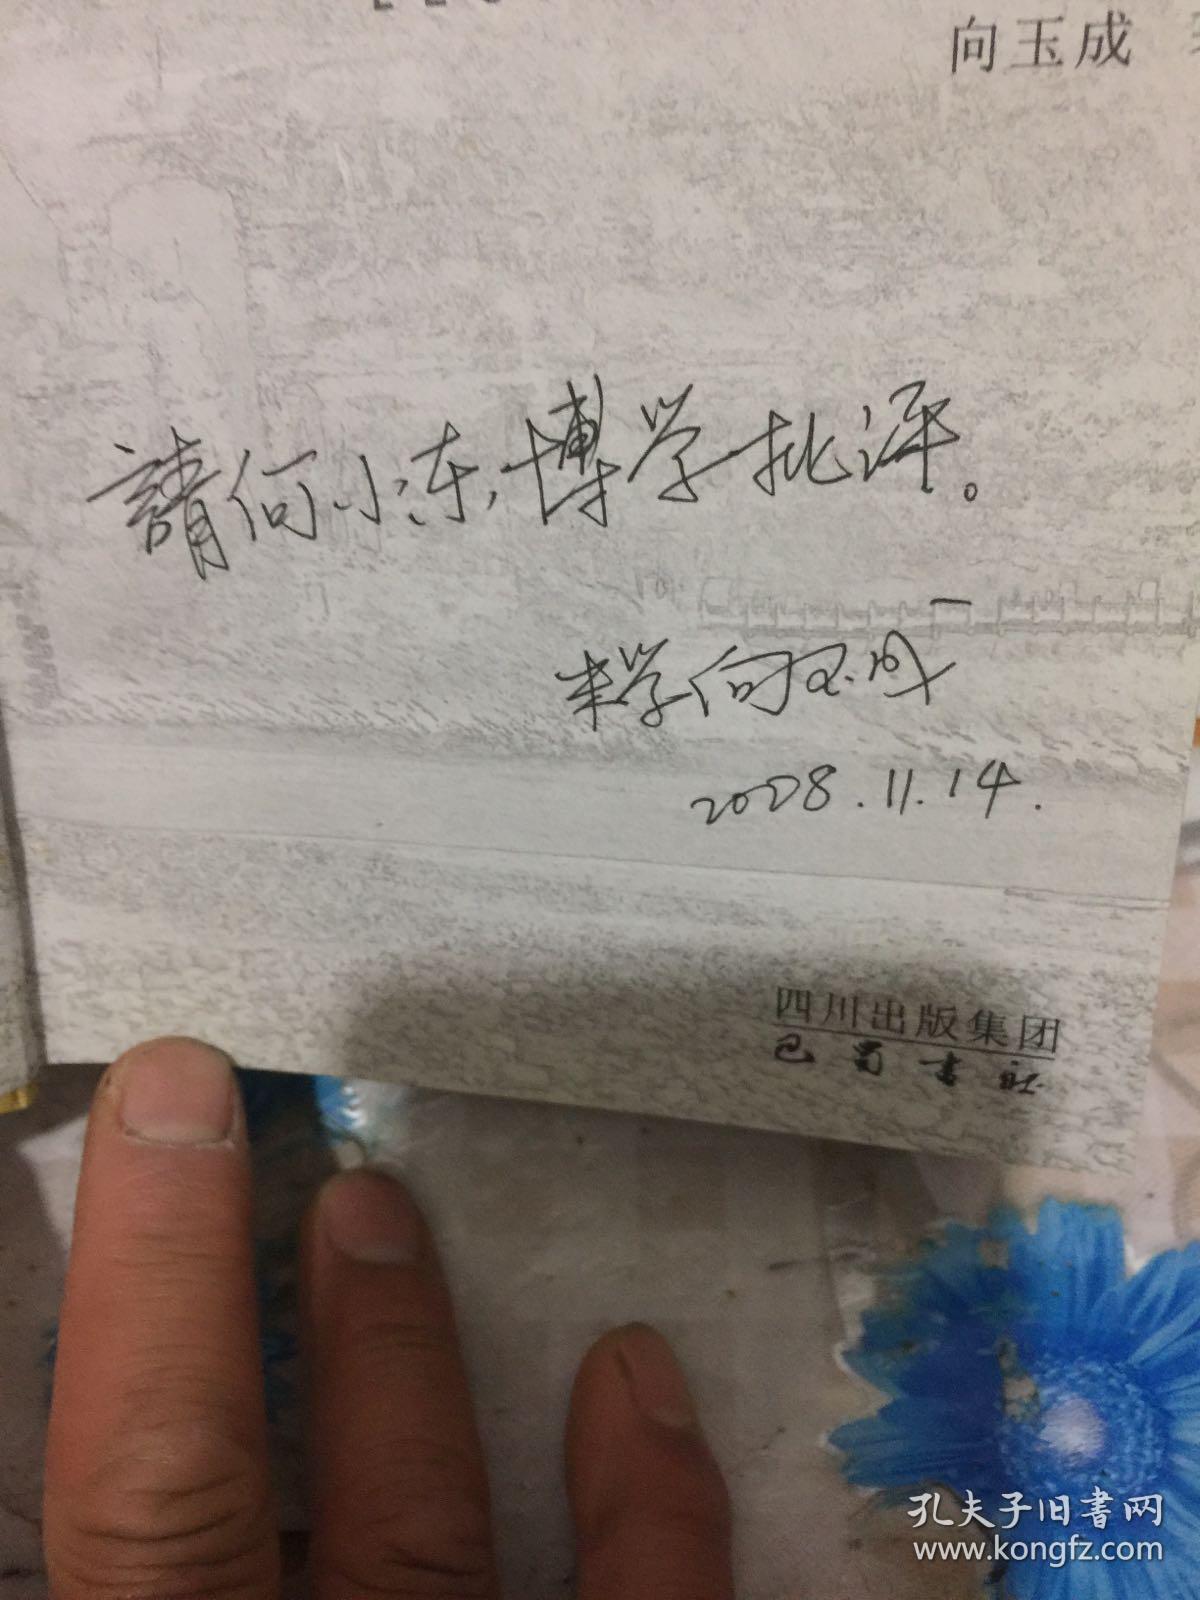 向玉成
請何小东，博学批评。
末学向玉成
2008.11.14.
四川出版集团
巴蜀书社
孔夫子旧書网
www.kongfz.com